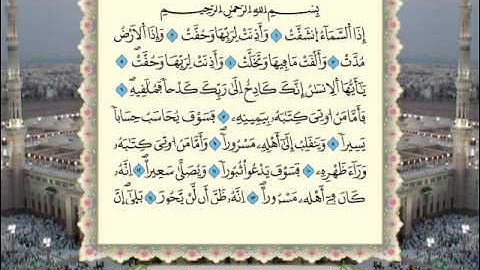 بِسْمِ اللَّهِ الرَّحْمَٰنِ الرَّحِيمِ
إِذَا السَّمَاءُ انشَقَّتْ وَأَذِنَتْ لِرَبِّهَا وَحُقَّتْ وَإِذَا الْأَرْضُ
مُدَّتْ وَأَلْقَتْ مَا فِيهَا وَتَخَلَّتْ وَأَذِنَتْ لِرَبِّهَا وَحُقَّتْ
يَا أَيُّهَا الْإِنسَانُ إِنَّكَ كَادِحٌ إِلَىٰ رَبِّكَ كَدْحًا فَمُلَاقِيهِ
فَأَمَّا مَنْ أُوتِيَ كِتَابَهُ بِيَمِينِهِ فَسَوْفَ يُحَاسَبُ حِسَابًا
يَسِيرًا وَيَنقَلِبُ إِلَىٰ أَهْلِهِ مَسْرُورًا وَأَمَّا مَنْ أُوتِيَ كِتَابَهُ
وَرَاءَ ظَهْرِهِ فَسَوْفَ يَدْعُو ثُبُورًا وَيَصْلَىٰ سَعِيرًا إِنَّهُ
كَانَ فِي أَهْلِهِ مَسْرُورًا إِنَّهُ ظَنَّ أَن لَّن يَحُورَ بَلَىٰ إِنَّ